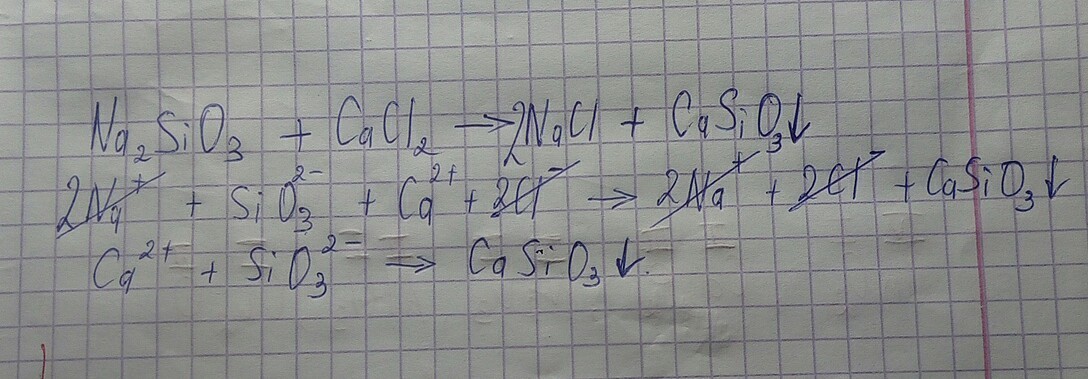 Na₂SiO₃ + CaCl₂ → 2NaCl + CaSiO₃↓
2Na⁺ + SiO₃²⁻ + Ca²⁺ + 2Cl⁻ → 2Na⁺ + 2Cl⁻ + CaSiO₃↓
Ca²⁺ + SiO₃²⁻ → CaSiO₃↓.